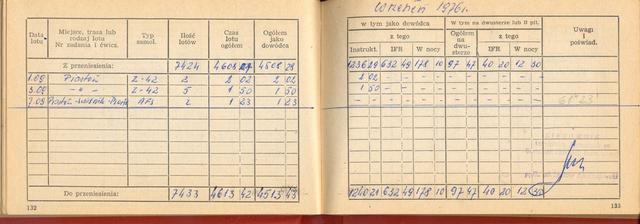 Wrzesień 1976 r.
Data lotu
Miejsce, trasa lub rodzaj lotu Nr zadania i ćwicz.
Typ samol.
Ilość lotów
Czas lotu ogółem
Ogółem jako dowódca
Z przeniesienia: 7424 4608 27 4508 28
1.09 Piastów Z-42 2 2 02 2 02
3.09 -"- Z-42 5 1 50 1 50
Do przeniesienia: 7433 4613 42 4513 43
132
w tym jako dowódca
w tym na dwusterze lub II pil.
Uwagi i poświad.
z tego
Ogółem na dwusterze
z tego
Instrukt. IFR W nocy IFR W nocy
1236 29 632 49 178 10 97 47 40 20 12 30
2 02 - - - - - - - - - -
1 50 - - - - - - - - - -
1240 21 632 49 178 10 97 47 40 20 12 30
133